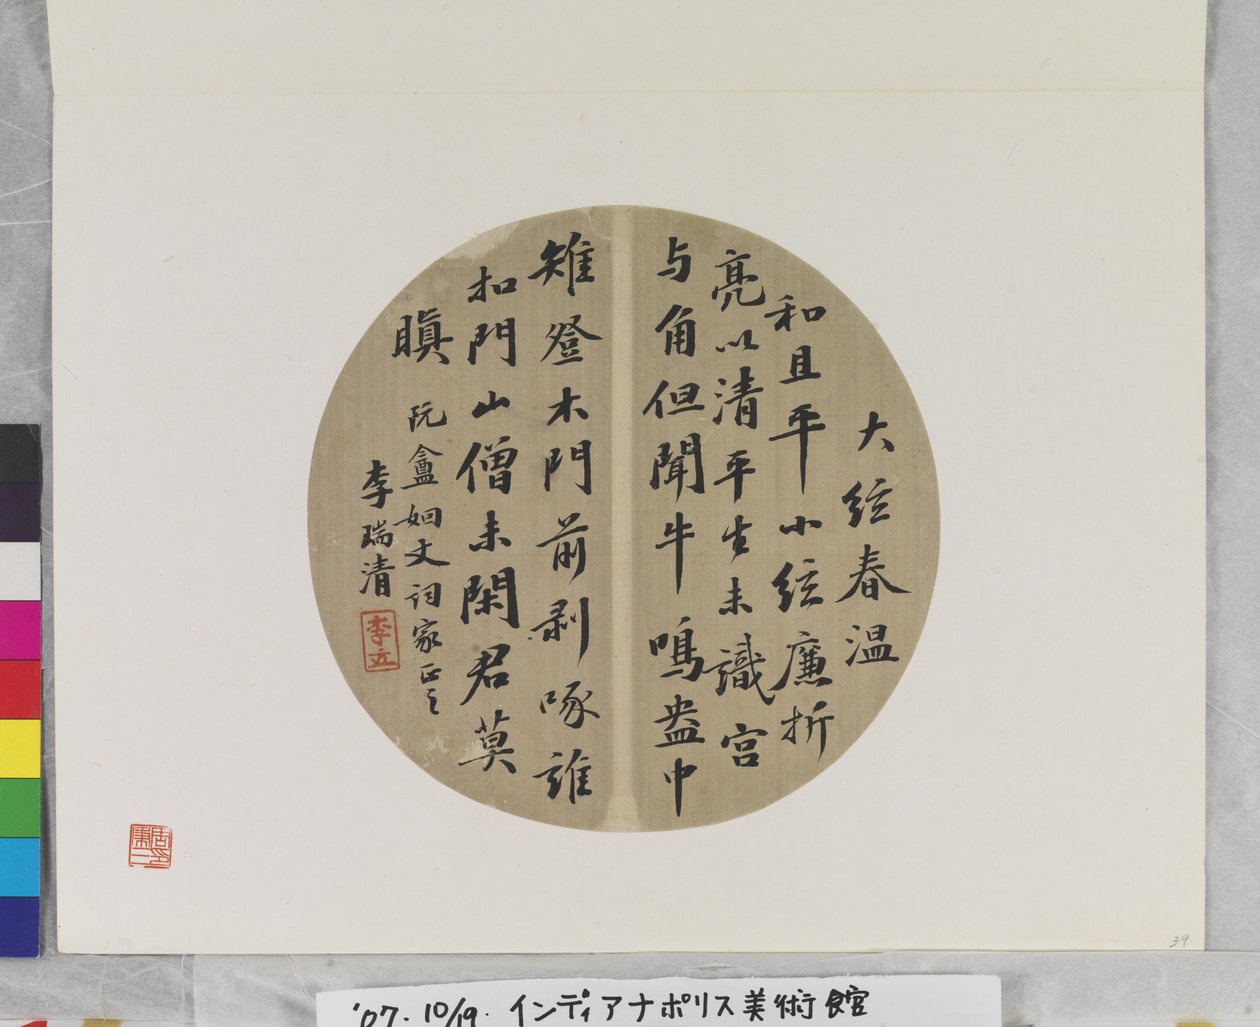 大絃春温
和且平小絃廉折
亮以清平生未識宮
与角但聞牛鳴盎中
雉登木門前剥啄誰
扣門山僧未閑君莫
瞋
阮盦姻丈詞家正之
李瑞清
39
'07.10/19.インディアナポリス美術館